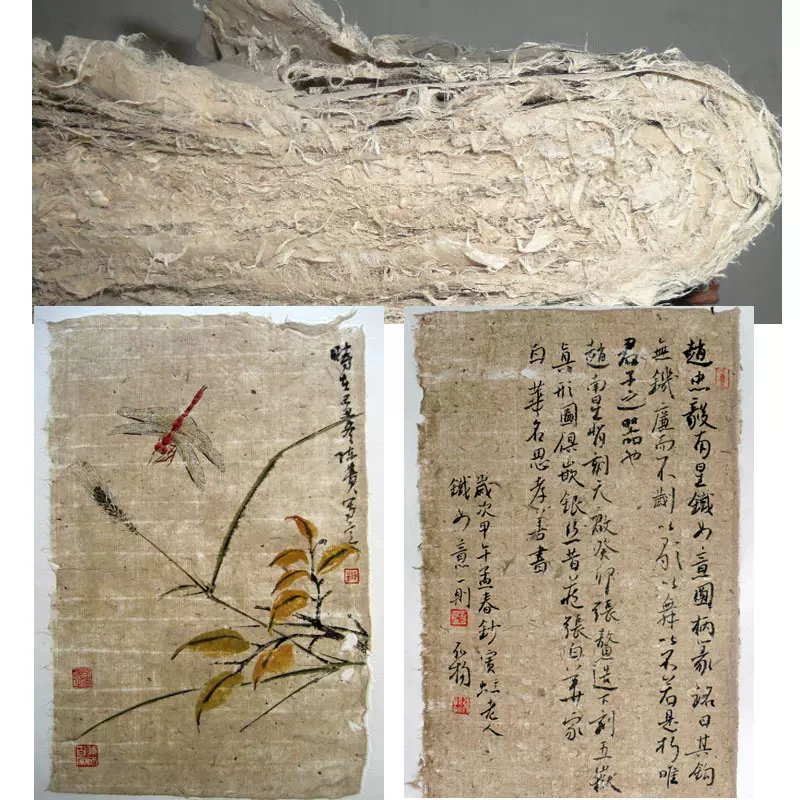 時在己丑冬陳貴寫之
趙忠毅南星鐵如意圓柄篆銘曰其鉤
無鐖廉而不劌以歌以舞以不若是折唯
君子之器也
趙南星刻天啟癸卯張鰲造下刻五嶽
真形圖俱嵌銀絲昔藏張伯華家
白華名思孝善書
歲次甲午孟春鈔賓虹老人
鐵如意一則